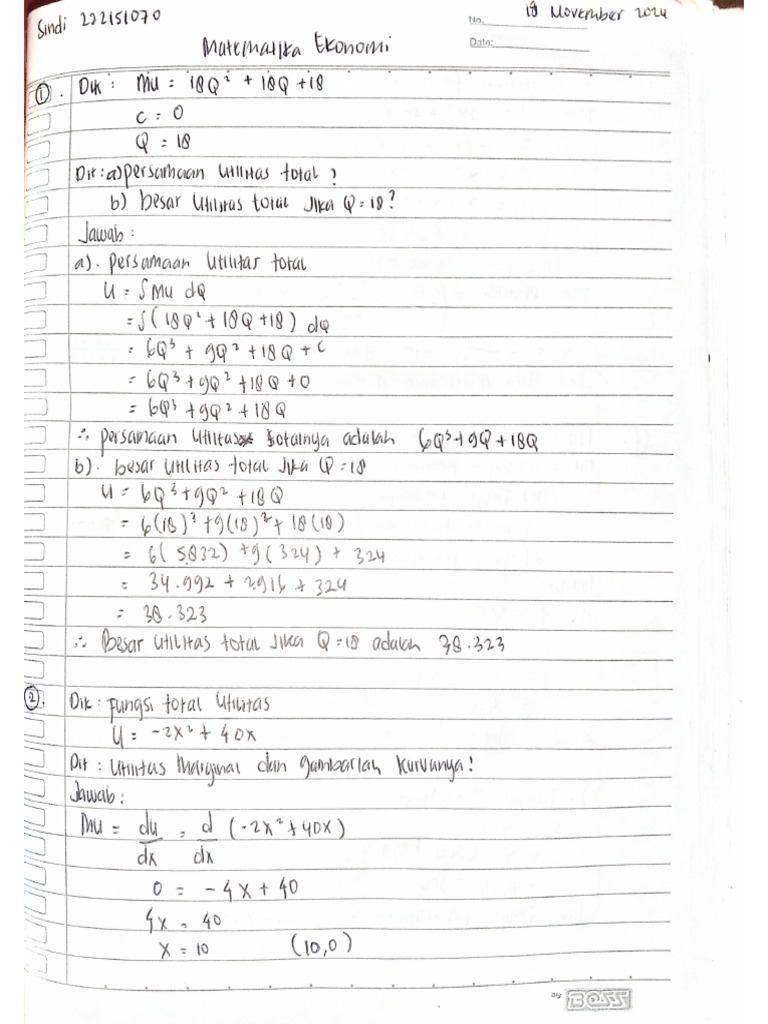 Sindi 222151070
No.
18 November 2024
Matematika Ekonomi
Date:
①. Dik : Mu = 18Q² + 18Q + 18
C = 0
Q = 18
Dit : a) persamaan utilitas total ?
b) besar utilitas total jika Q = 18 ?
Jawab :
a). persamaan utilitas total
U = ∫ Mu dQ
= ∫ ( 18Q² + 18Q + 18 ) dQ
= 6Q³ + 9Q² + 18Q + C
= 6Q³ + 9Q² + 18Q + 0
= 6Q³ + 9Q² + 18Q
∴ persamaan utilitas totalnya adalah 6Q³ + 9Q + 18Q
b). besar utilitas total jika Q = 18
U = 6Q³ + 9Q² + 18Q
= 6(18)³ + 9(18)² + 18(18)
= 6( 5.832) + 9( 324) + 324
= 34.992 + 2.916 + 324
= 38.323
∴ Besar utilitas total jika Q = 18 adalah 38.323
②. Dik : Fungsi total utilitas
U = -2x² + 40x
Dit : Utilitas Marginal dan gambarlah kurvanya !
Jawab :
Mu = du/dx = d/dx (-2x² + 40x)
0 = -4x + 40
4x = 40
x = 10 (10,0)
BOSS